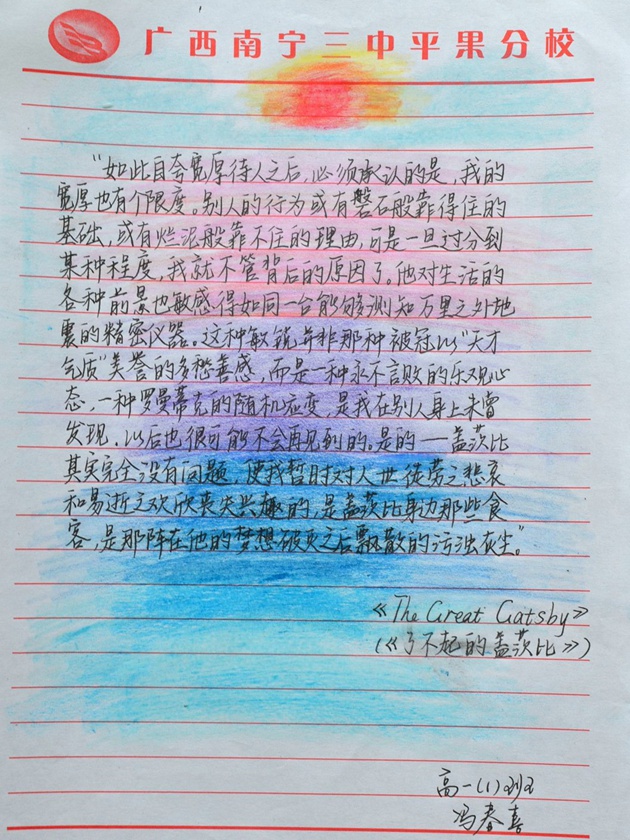 广西南宁三中平果分校
“如此自夸宽厚待人之后，必须承认的是，我的
宽厚也有个限度。别人的行为或有磐石般靠得住的
基础，或有烂泥般靠不住的理由，可是一旦过分到
某种程度，我就不管背后的原因了。他对生活的
各种前景也敏感得如同一台能够测知万里之外地
震的精密仪器。这种敏锐并非那种被冠以“天才
气质”美誉的多愁善感，而是一种永不言败的乐观心
态，一种罗曼蒂克的随机应变，是我在别人身上未曾
发现，以后也很可能不会再见到的。是的——盖茨比
其实完全没有问题，使我暂时对人世徒劳之悲哀
和易逝之欢欣丧失兴趣的，是盖茨比身边那些食
客，是那阵在他的梦想破灭之后飘散的污浊灰尘。”
《The Great Gatsby》
(《了不起的盖茨比》)
高一(1)班
冯春喜